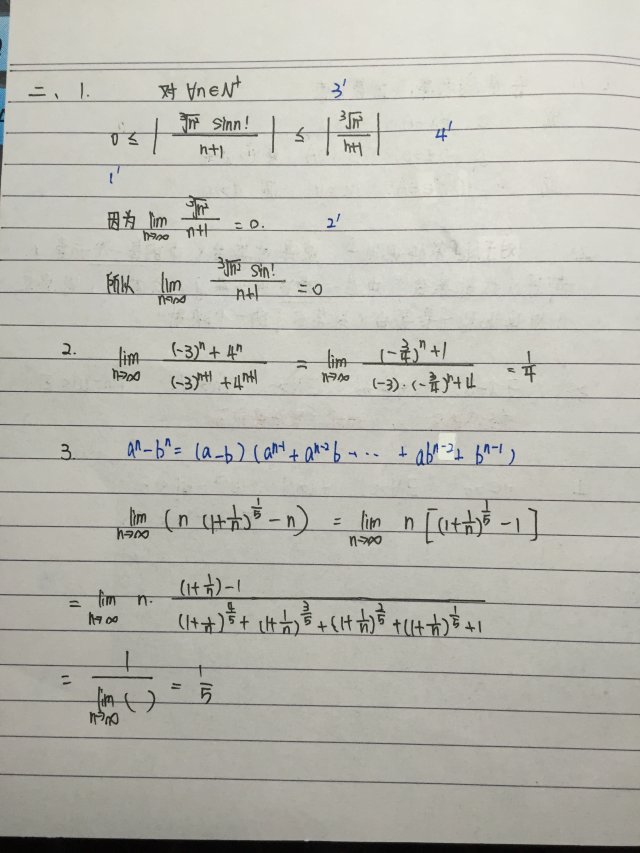 二、1. 对 ∀n∈N⁺ 3'
0 ≤ | ∛n² sinn! / n+1 | ≤ | ∛n² / n+1 | 4'
1'
因为 lim n→∞ ∛n² / n+1 = 0. 2'
所以 lim n→∞ ∛n² sin! / n+1 = 0
2. lim n→∞ (-3)ⁿ + 4ⁿ / (-3)ⁿ⁺¹ + 4ⁿ⁺¹ = lim n→∞ (-3/4)ⁿ + 1 / (-3)·(-3/4)ⁿ + 4 = 1/4
3. aⁿ - bⁿ = (a-b) (aⁿ⁻¹ + aⁿ⁻²b + ··· + abⁿ⁻² + bⁿ⁻¹)
lim n→∞ (n (1+1/n)^(1/5) - n) = lim n→∞ n [(1+1/n)^(1/5) - 1]
= lim n→∞ n· (1+1/n) - 1 / (1+1/n)^(4/5) + (1+1/n)^(3/5) + (1+1/n)^(2/5) + (1+1/n)^(1/5) + 1
= 1 / lim n→∞ ( ) = 1/5